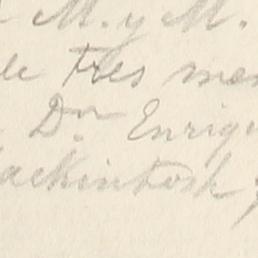 M. y M.
de Tres me
Dr Enriqu
ackintosh y